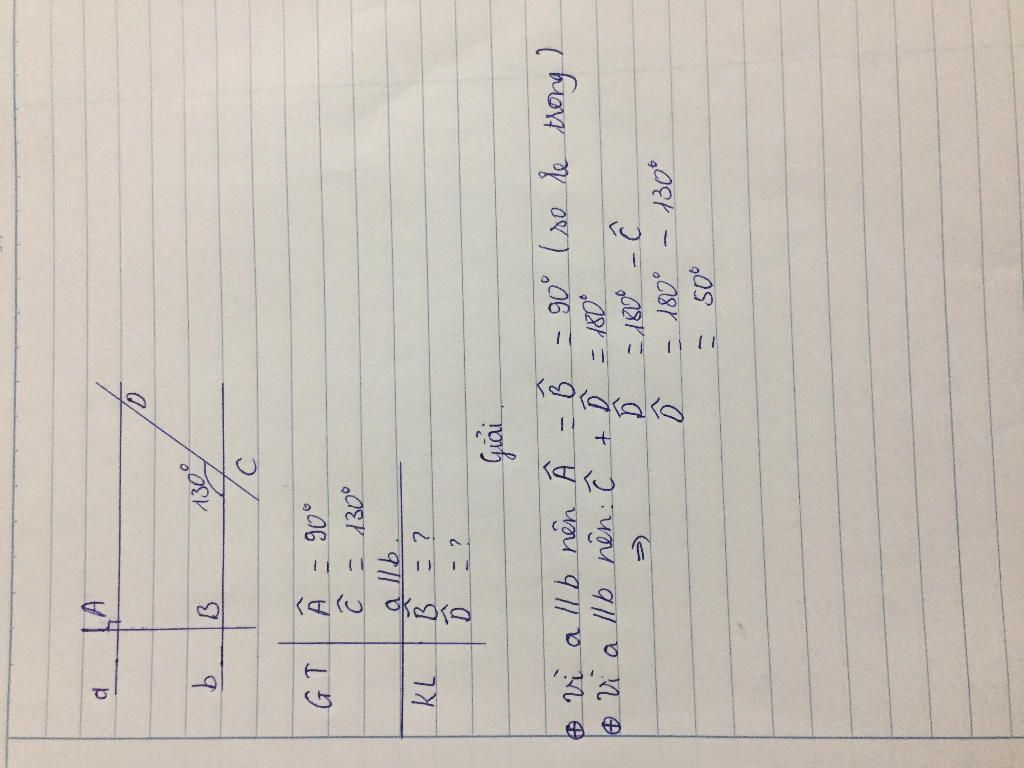 a A D
b B 130° C
GT Â = 90°
Ĉ = 130°
a // b
KL B̂ = ?
D̂ = ?
Giải
⊕ Vì a // b nên Â = B̂ = 90° (so le trong)
⊕ Vì a // b nên: Ĉ + D̂ = 180°
⇒ D̂ = 180° - Ĉ
D̂ = 180° - 130°
= 50°